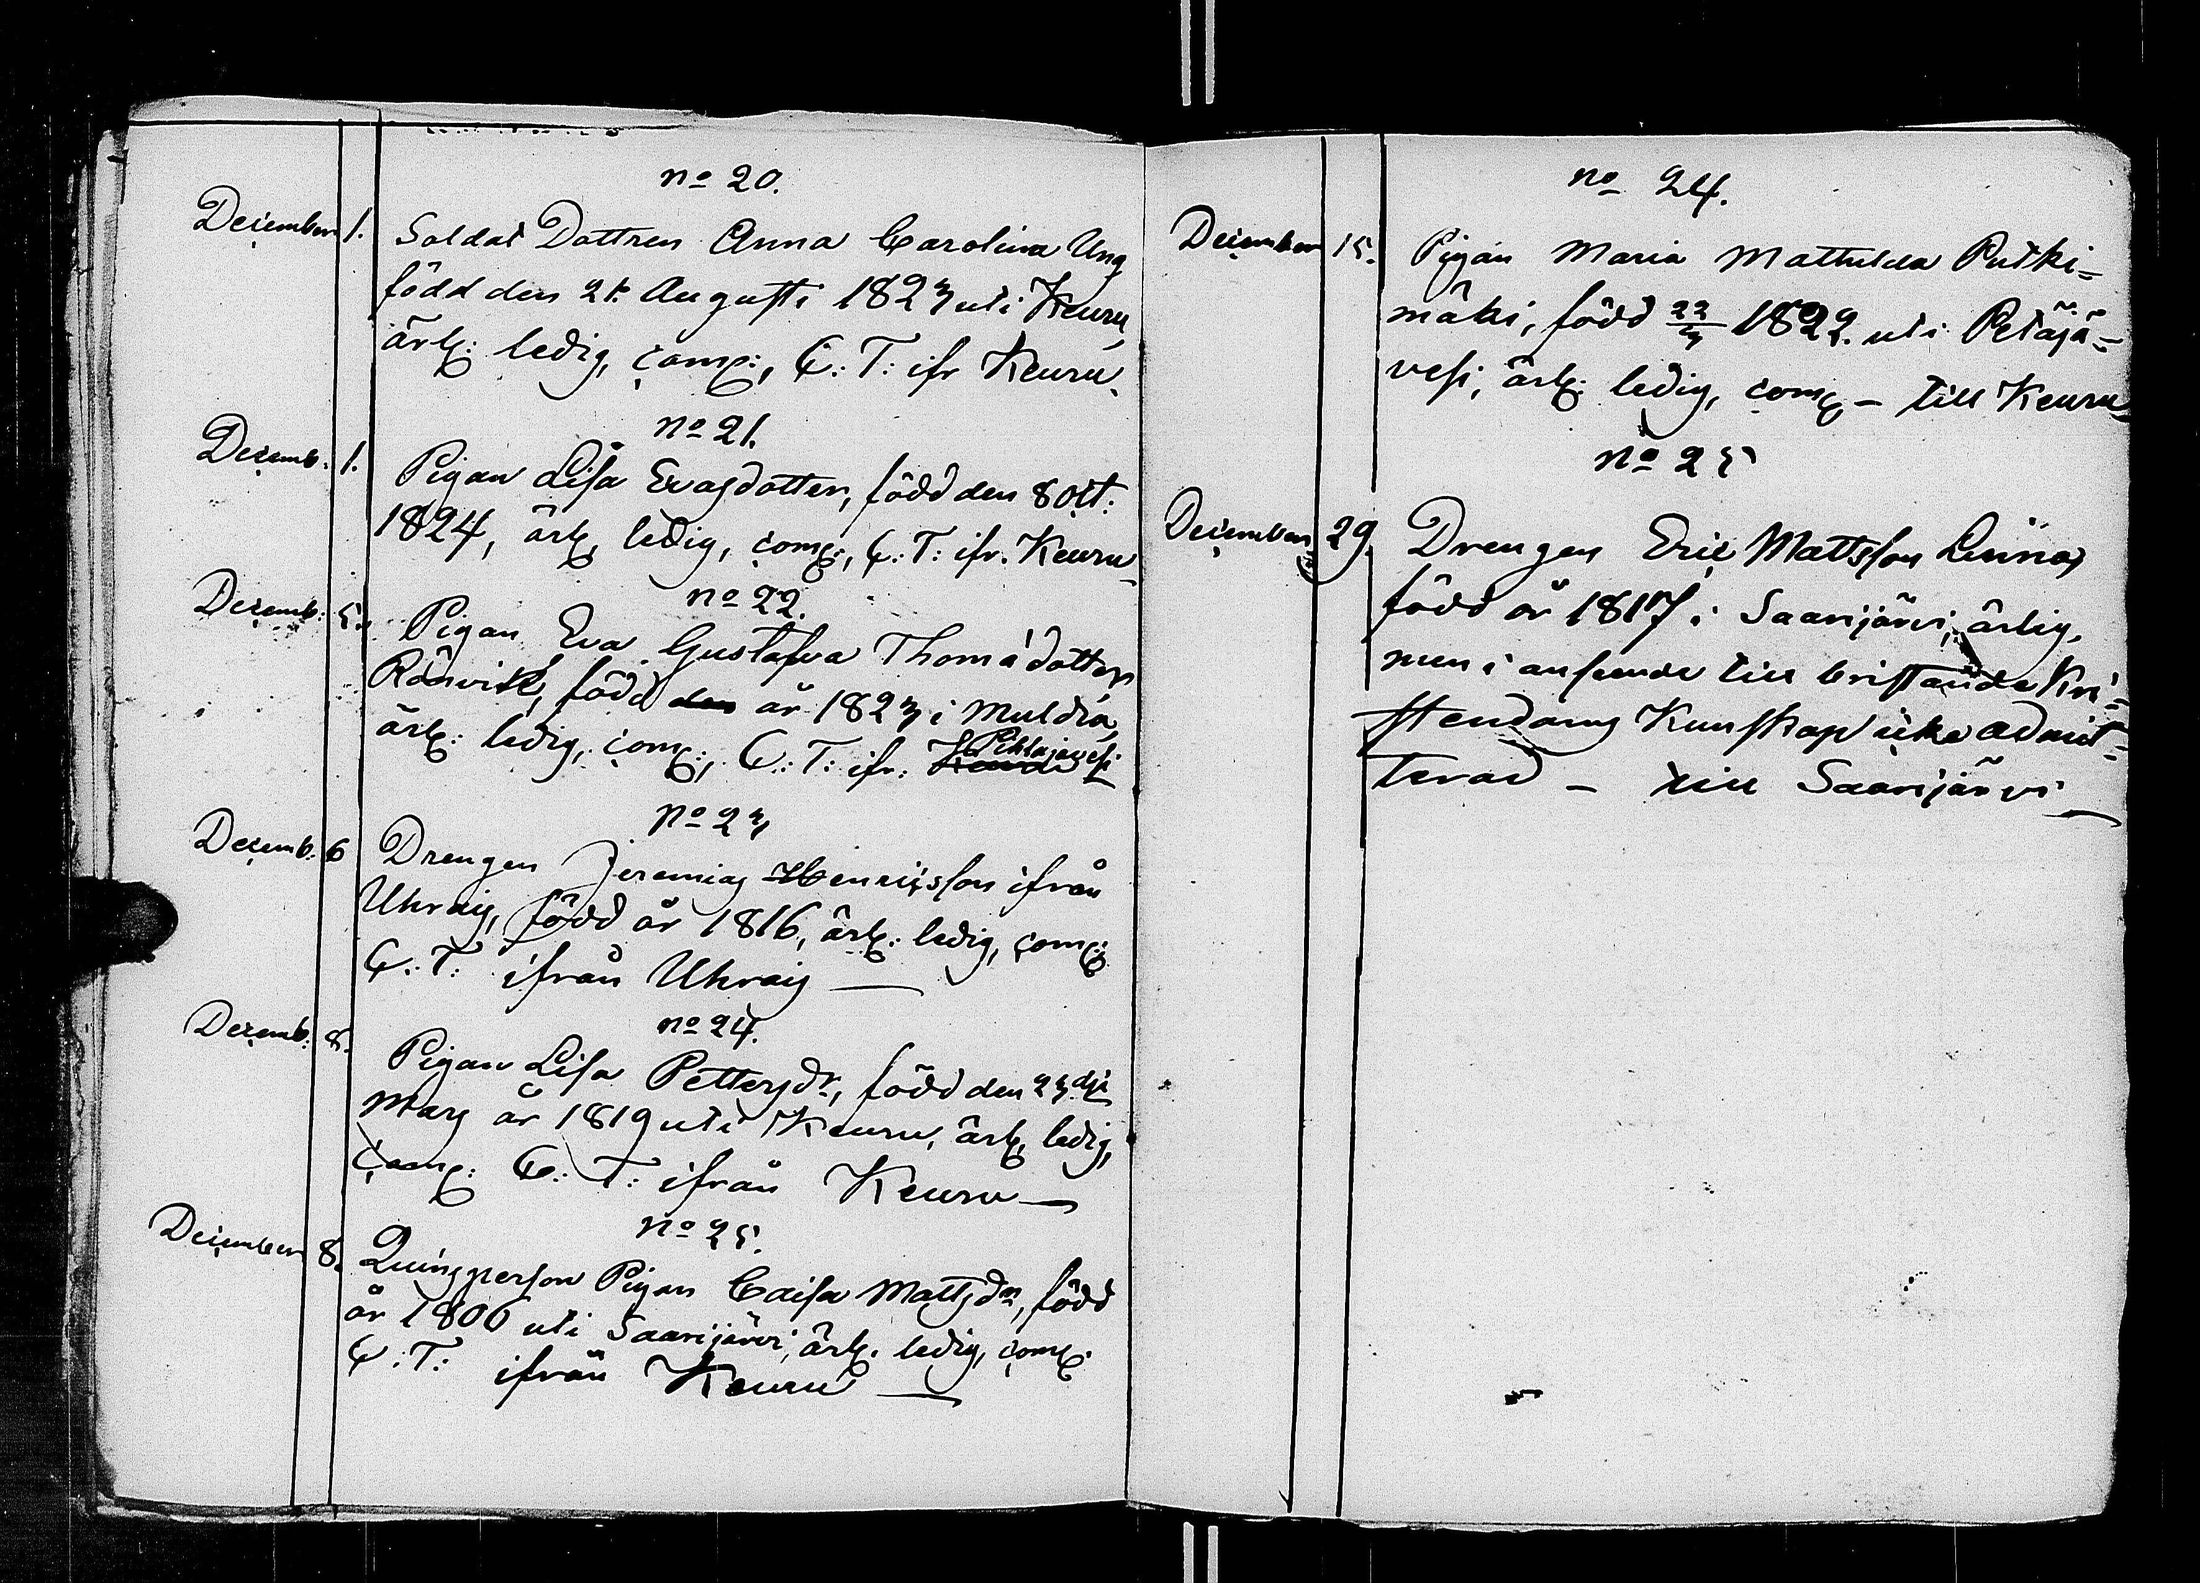 No 20.
December 1. Soldat Dottren Anna Carolina Ung
född den 21. Augusti 1823 uti Keuru,
ärl: ledig, comp:, C: T: ifr Keuru.
No 21.
Decemb. 1. Pigan Lisa Evasdotter, född den 8 Oct:
1824, ärl. ledig, comp:, C: T: ifr. Keuru
No 22.
Decemb: 5. Pigan Eva Gustafva Thomädotter
född den år 1823 i Muldia,
ärl: ledig, comp:, C: T: ifr: Pihlajavesi
No 23
Decemb. 6 Drengen Jeremias Henricsson ifrån
Uhrais, född år 1816, ärl: ledig, comp:
C: T: ifrån Uhrais —
No 24.
Decemb: 8. Pigan Lisa Pettersdr, född den 23dje
Mars år 1819 uti Keuru, ärl. ledig,
comp: C: T: ifrån Keuru —
No 25.
December 8. Qvinsperson Pigan Caisa Mattsdr, född
år 1806 uti Saarijärvi, ärl. ledig, comp.
C: T: ifrån Keuru —
No 24.
December 15. Pigan Maria Mathilda Putki=
mäki, född 22/3 1822. uti Petäjä=
vesi, ärl: ledig, comp — till Keuru
No 25
December 29. Drengen Eric Mattsson Linna,
född år 1817 i Saarijärvi, ärlig,
men i anseende till bristande Kri=
stendoms Kunskap icke admit=
terad — till Saarijärvi —